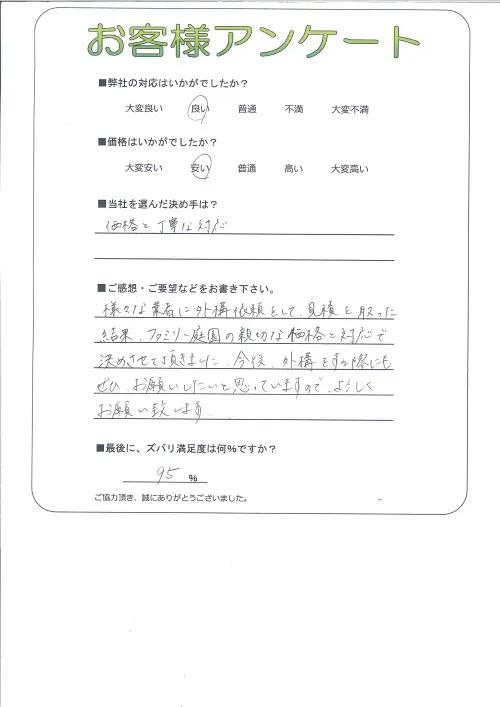 お客様アンケート
■弊社の対応はいかがでしたか？
大変良い 良い 普通 不満 大変不満
■価格はいかがでしたか？
大変安い 安い 普通 高い 大変高い
■当社を選んだ決め手は？
価格と丁寧な対応
■ご感想・ご要望などをお書き下さい。
様々な業者に外構依頼をして、見積を取った
結果、ファミリー庭園の親切な価格と対応で
決めさせて頂きました。今後、外構をする際にも
ぜひ、お願いしたいと思っていますので、よろしく
お願い致します。
■最後に、ズバリ満足度は何％ですか？
95 %
ご協力頂き、誠にありがとうございました。